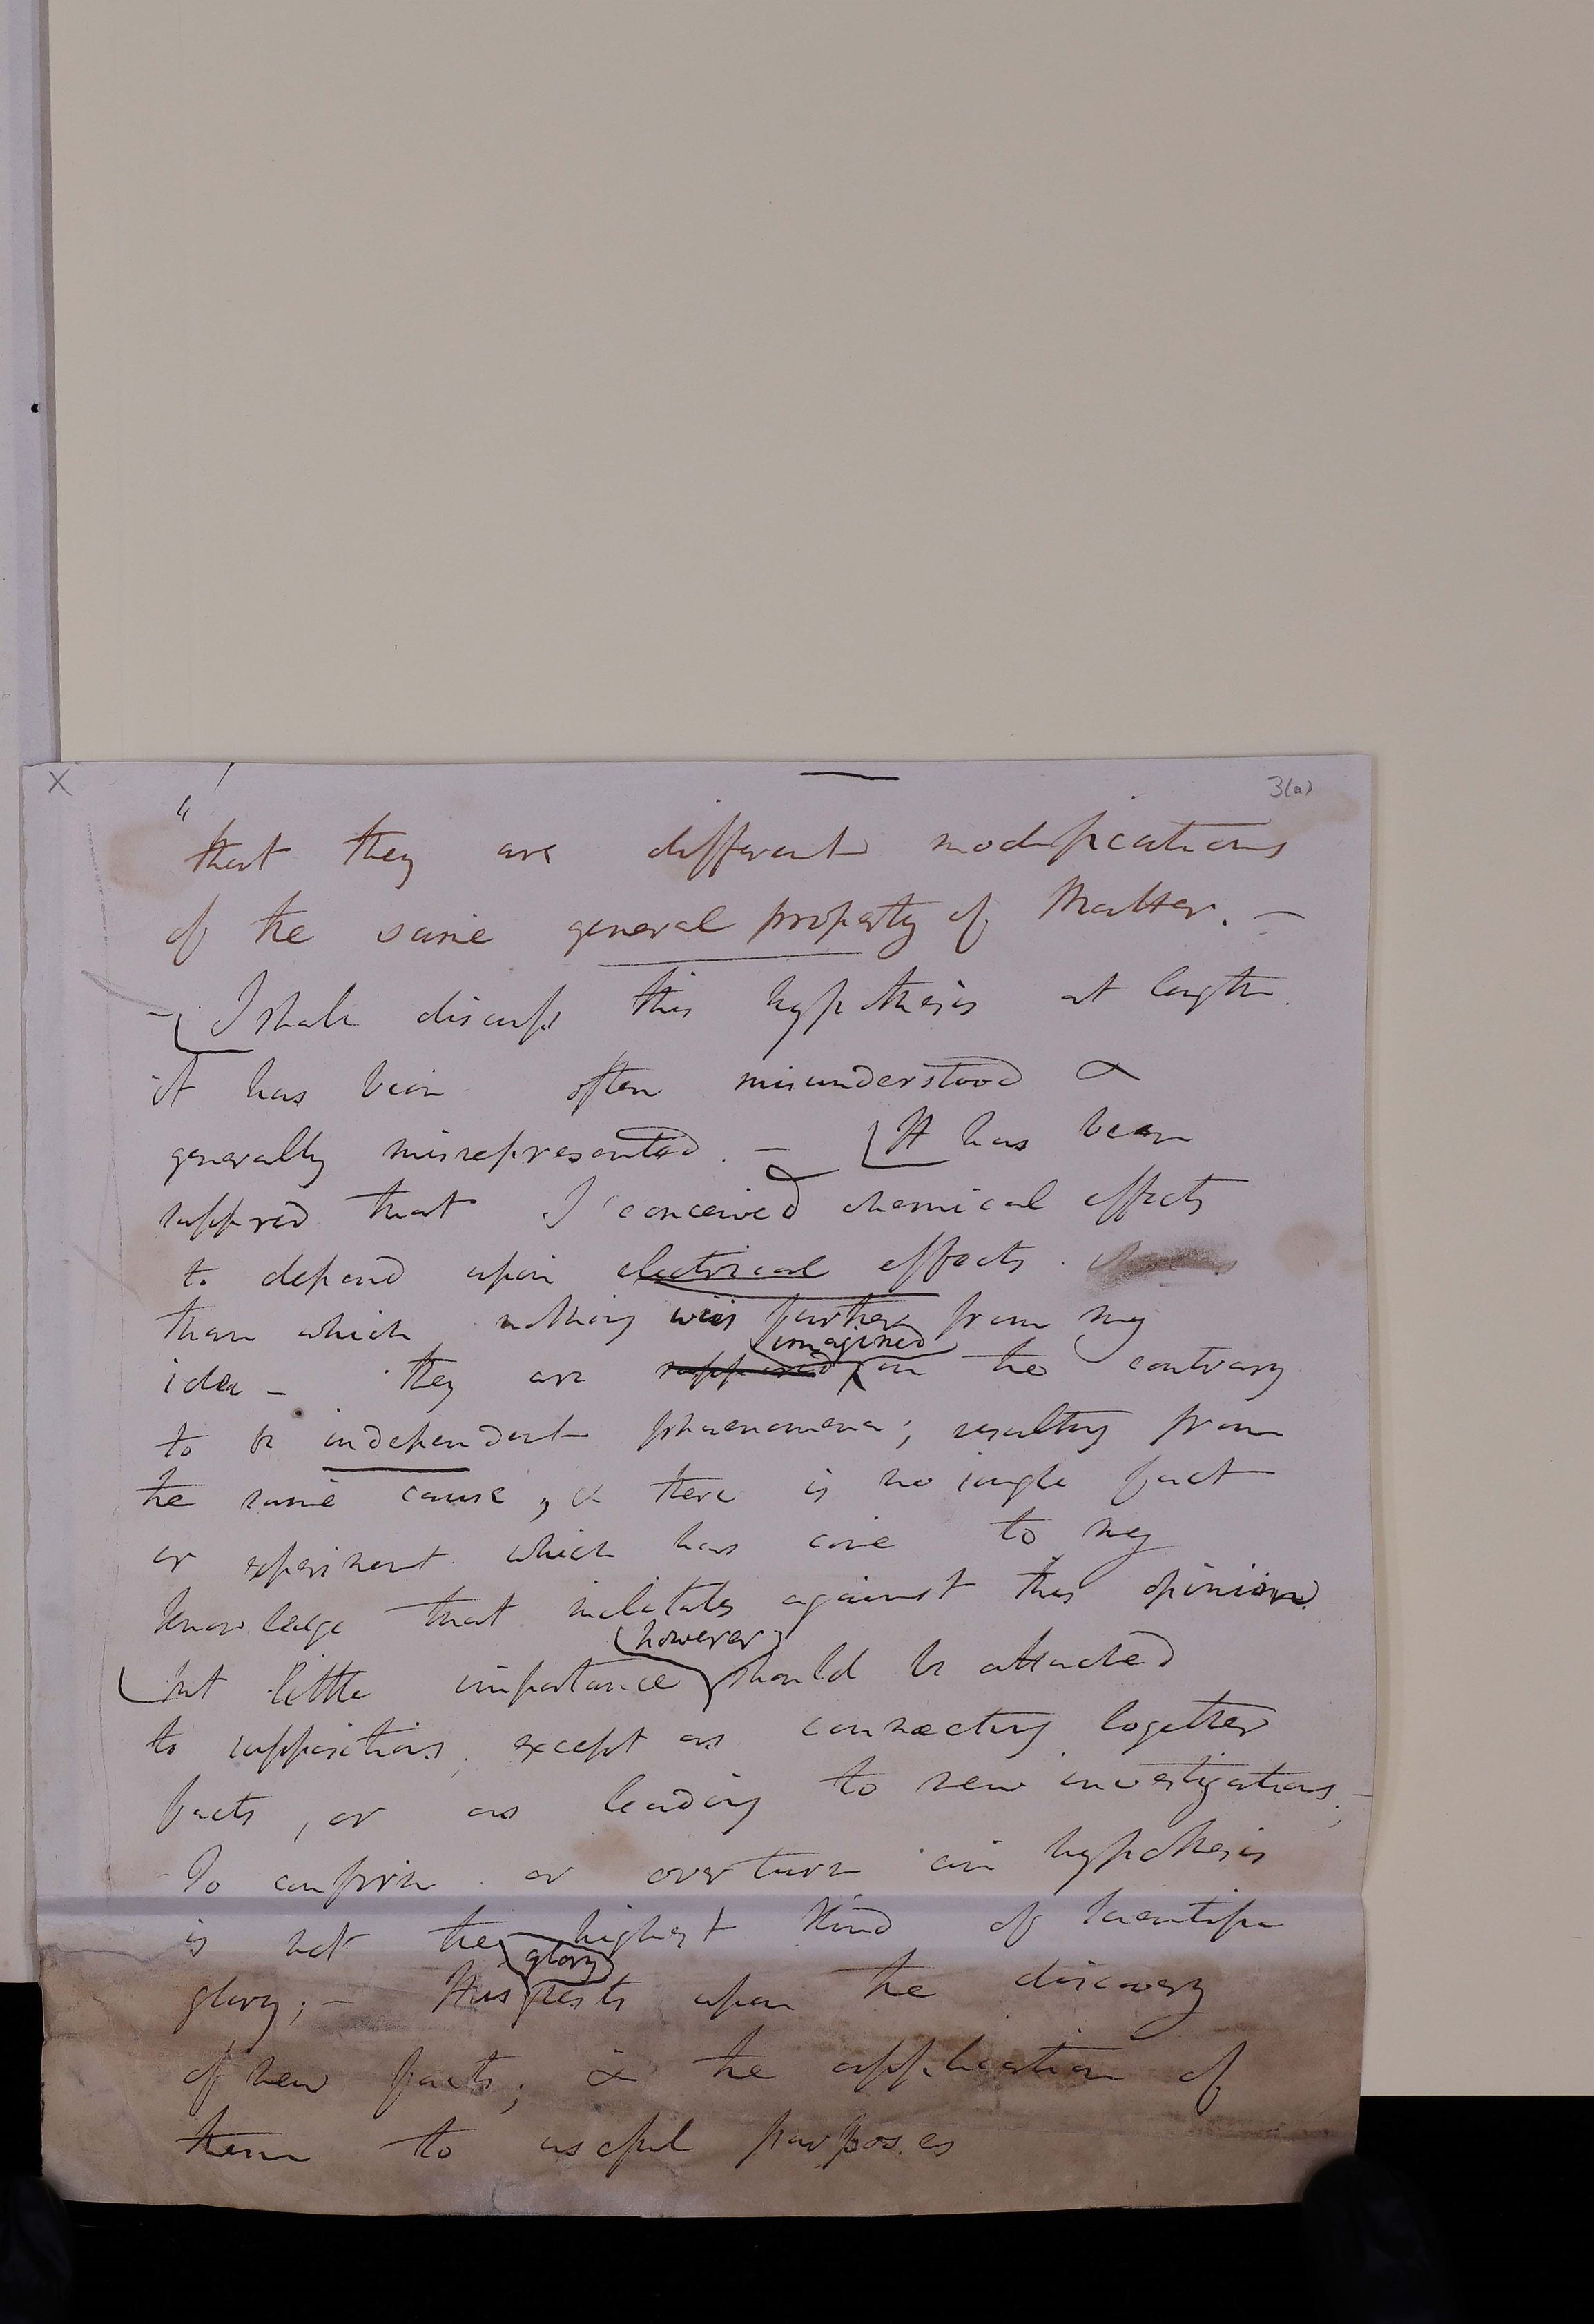 X
3(a)
" that they are different modifications
of the same general property of Matter. —
— I shall discuss this hypothesis at length.
it has been often misunderstood &
generally misrepresented. — It has been
supposed that I conceived chemical effects
to depend upon electrical effects.
than which nothing was further from my
imagined
idea — they are supposed on the contrary
to be independent phaenomena; resulting from
the same cause, & there is no single fact
or experiment which has come to my
knowledge that militates against this opinion.
however
but little importance should be attached
to suppositions, except as connecting together
facts, or as leading to new investigations. —
To confirm or overturn an hypothesis
is not the highest kind of scientific
glory
glory; — This rests upon the discovery
of new facts; & the application of
them to useful purposes